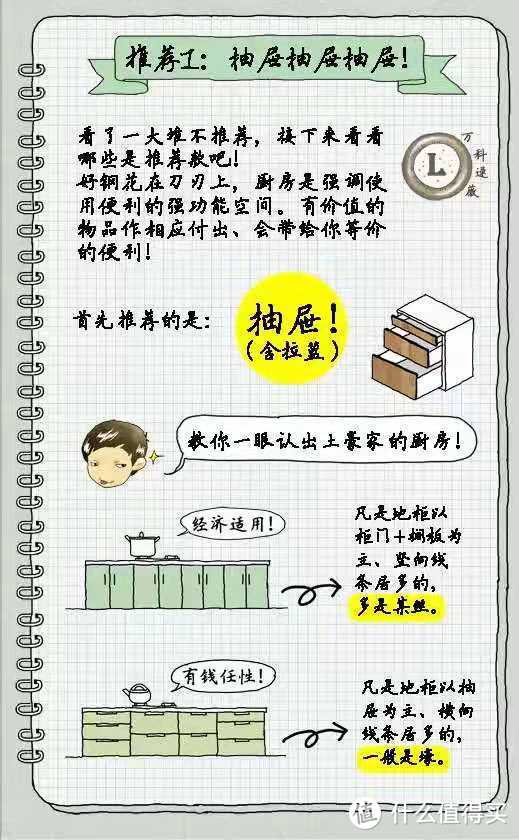 推荐1：抽屉抽屉抽屉！
看了一大堆不推荐，接下来看看
哪些是推荐款吧！
好钢花在刀刃上，厨房是强调使
用便利的强功能空间。有价值的
物品作相应付出、会带给你等价
的便利！
L
万科连廠
首先推荐的是：
抽屉！
（含拉篮）
教你一眼认出土豪家的厨房！
经济适用！
凡是地柜以
柜门+搁板为
主、竖向线
条居多的，
多是某丝。
有钱任性！
凡是地柜以抽
屉为主、横向
线条居多的，
一般是壕。
值 什么值得买